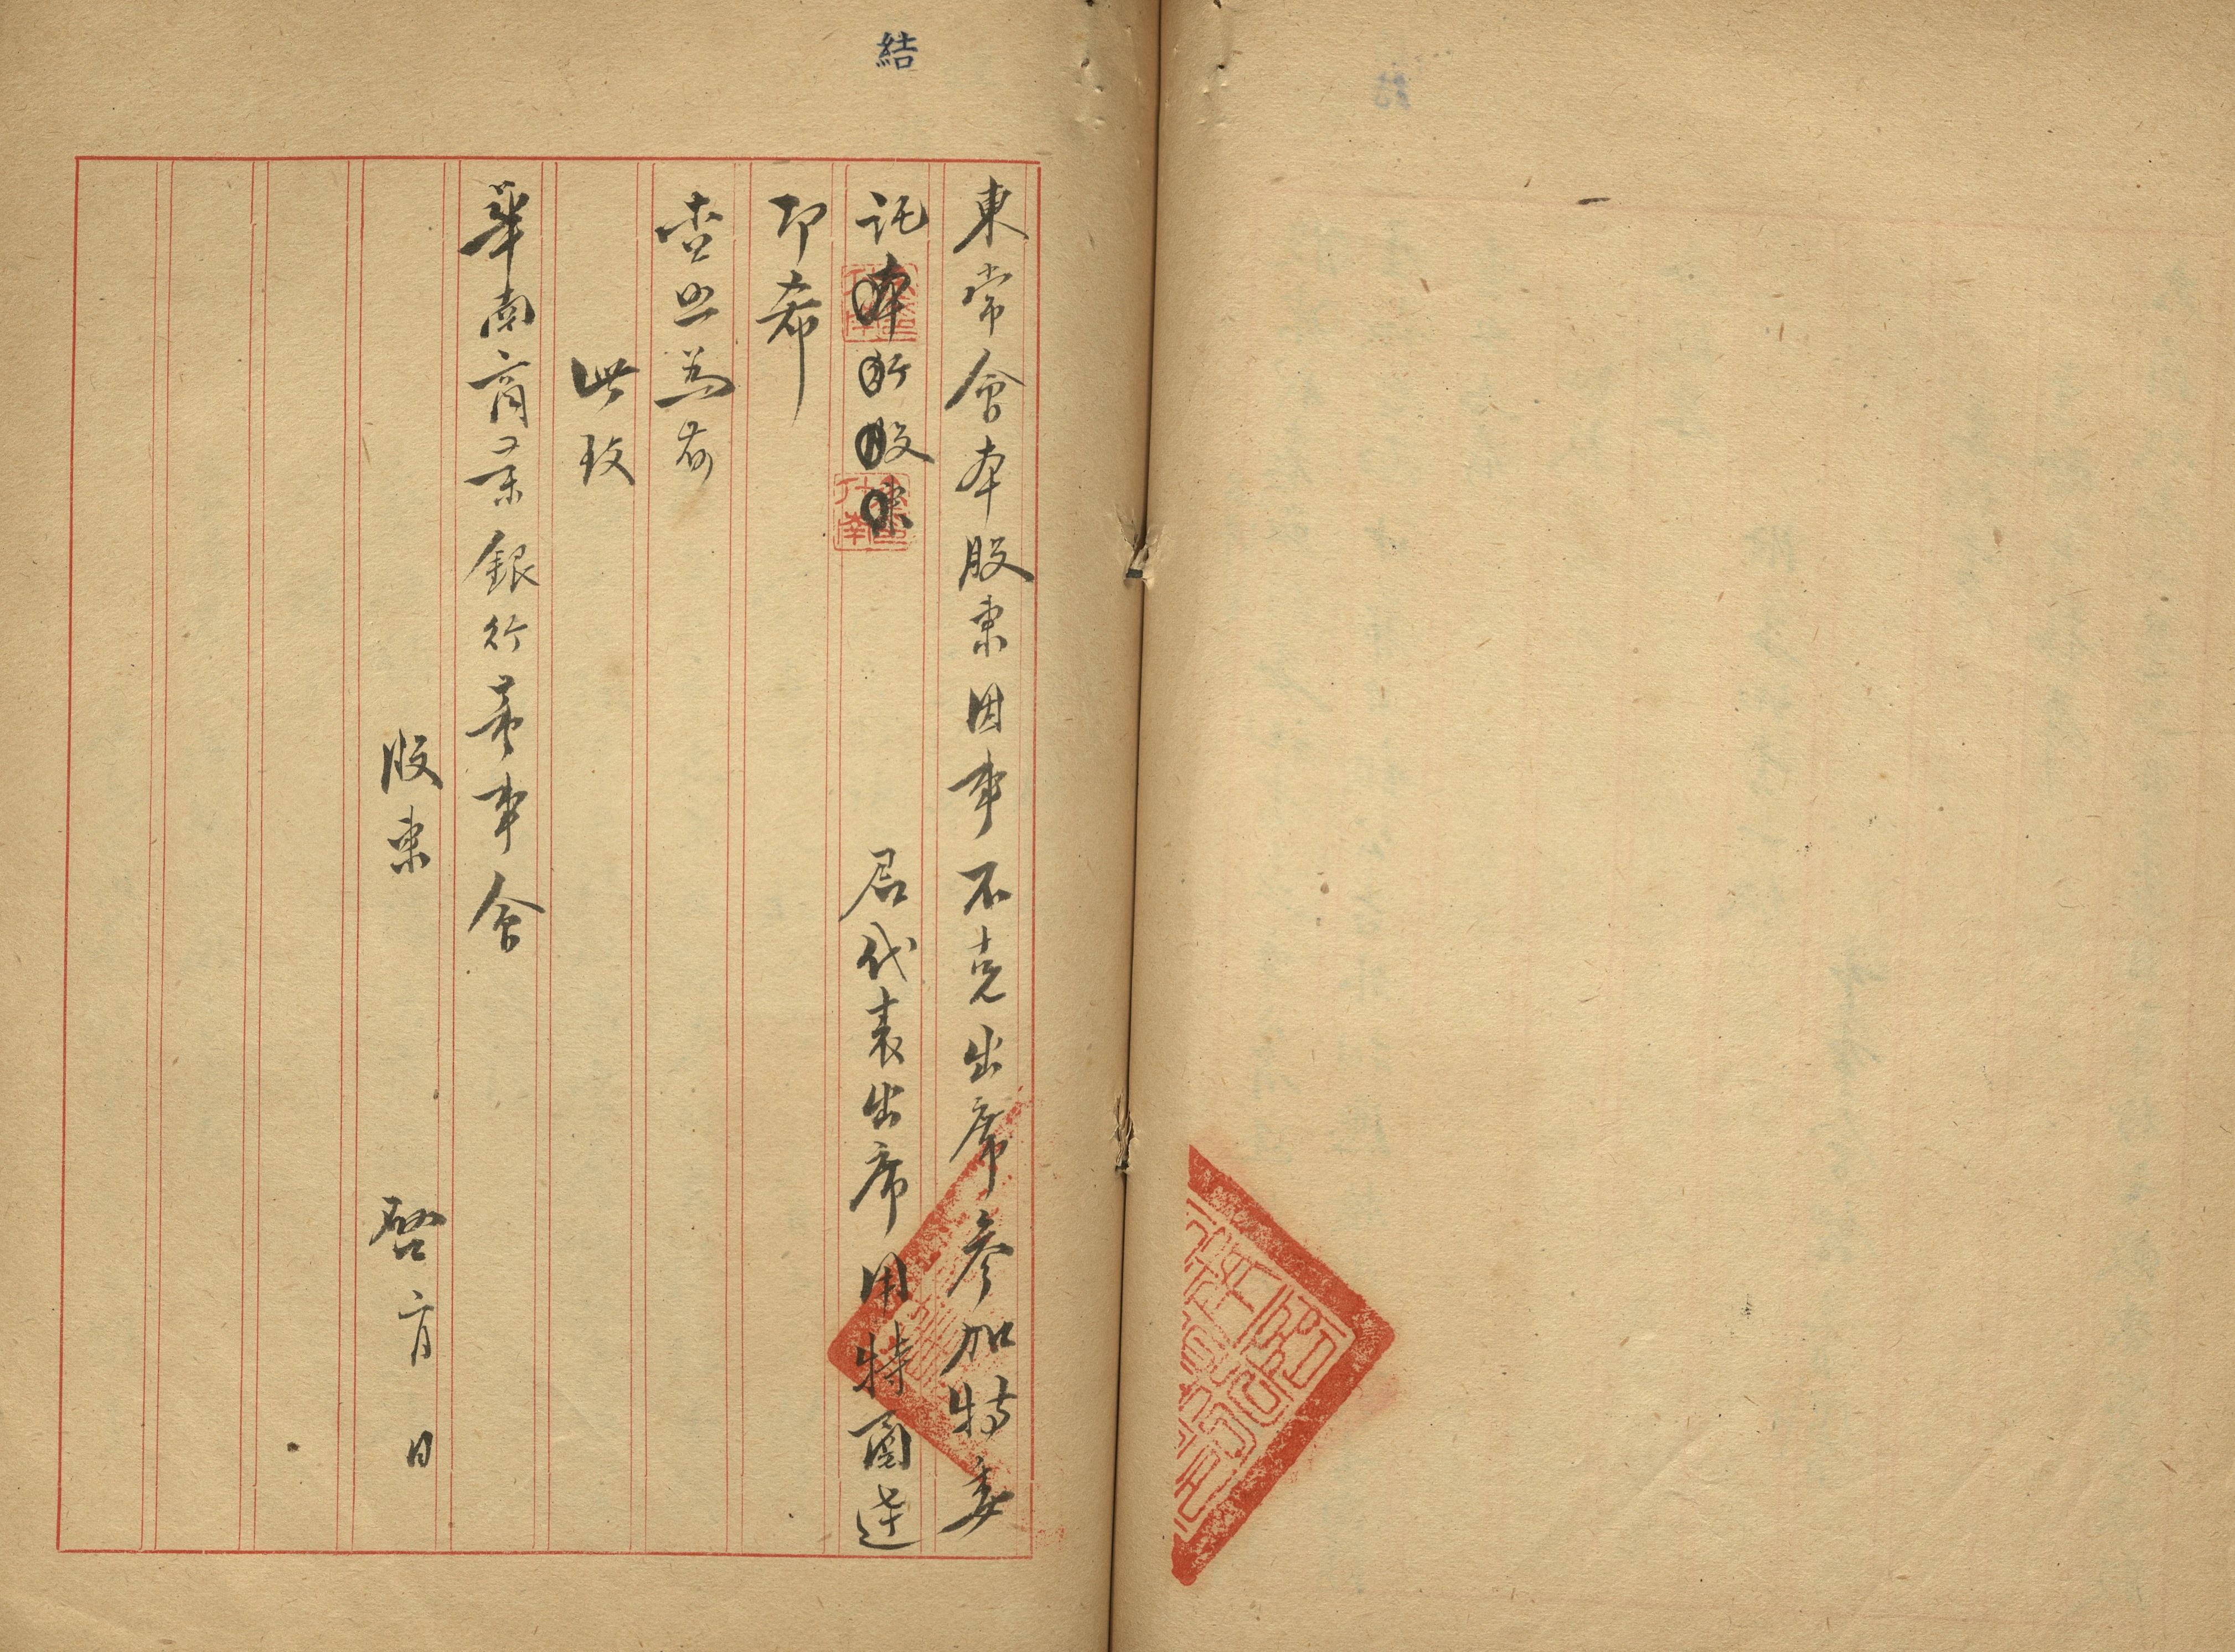 結
東常會本股東因事不克出席參加特委
託本行股東　　　君代表出席用特函達
即希
查照為荷
此致
華南商業銀行董事會
股東　　　啓　月　日